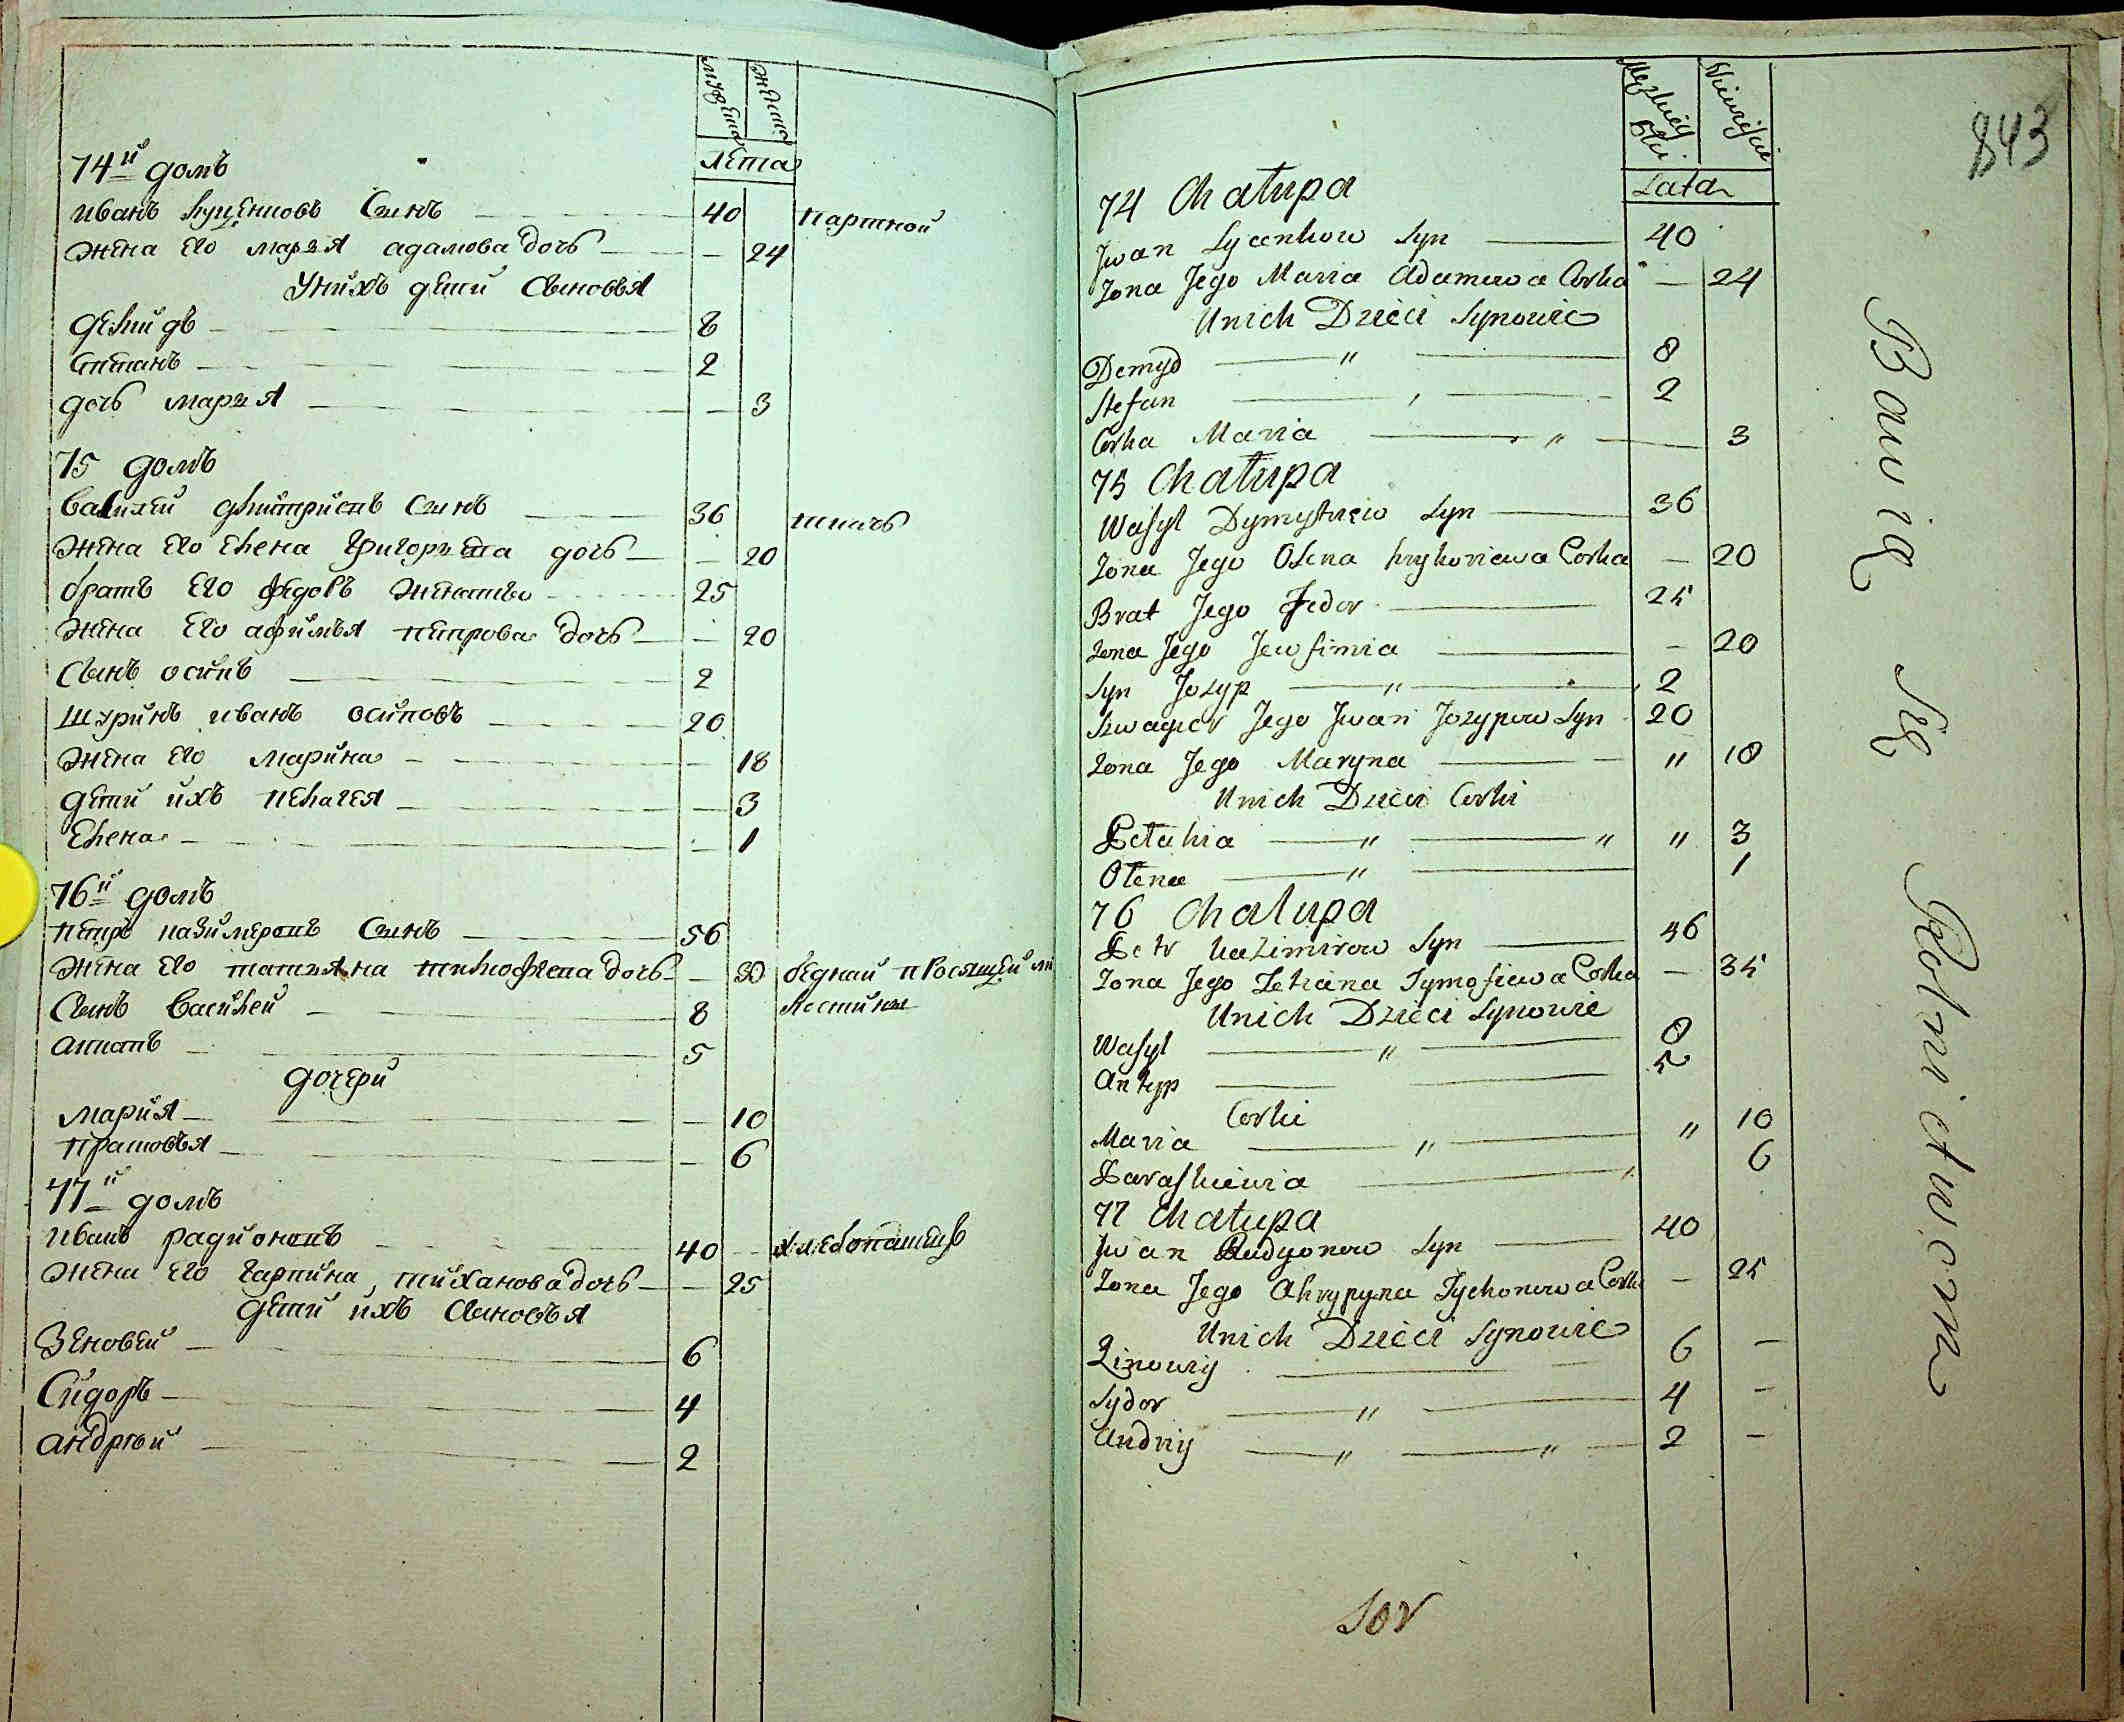 лѣта
74й домъ
иванъ луценковъ сынъ 40 портной
жена его марья адамова дочь — 24
У нихъ дети сыновья
демидъ 8
степанъ 2
дочь марья — 3
75 домъ
василий дмитриевъ сынъ 36 ткачъ
жена его елена григорьева дочь — 20
братъ его федоръ женатъ 25
жена его афимья петрова дочь — 20
сынъ осипъ 2
шуринъ иванъ осиповъ 20
жена его марина — 18
дети ихъ пелагея — 3
елена — 1
76й домъ
петръ казимеровъ сынъ 56
жена его татьяна тимофеева дочь — 30 бедный просящей ми
сынъ василей 8 лостини
антопъ 5
дочери
мария — 10
прасковья — 6
77й домъ
иванъ радионовъ 40 — хлебопашецъ
жена его гарпина, тиханова дочь — 25
дети ихъ сыновья
Зеновей 6
Сидоръ 4
андрей 2
843
Męzkiey Płci Niewieściey
Lata
74 Chałupa
Jwan Łycenkow Syn 40
Zona Jego Maria Adamowa Corka — 24
Unich Dzieci Synowie
Demyd " 8
Stefan 2
Corka Maria " 3
75 Chałupa
Wasyl Dymytrew Syn 36
Zona Jego Ołena hryhoriewa Corka — 20
Brat Jego Fedor 25
Zona Jego Jewfimia — 20
Syn Jozyp " 2
Szwagier Jego Jwan Jozypow Syn 20
Zona Jego Maryna " 18
Unich Dzieci Corki
Pełahia " " " 3
Ołena " 1
76 Chałupa
Petr Kazimirow Syn 56
Zona Jego Tetiana Tymofiewa Corka — 35
Unich Dzieci Synowie
Wasyl " 8
Antyp 5
Corki
Maria " " 10
Paraskiewia 6
77 Chałupa
Jwan Rudyonow Syn 40
Zona Jego Ahrypyna Tychonowa Corka — 25
Unich Dzieci Synowie
Zinowiy 6 —
Sydor " 4 —
Andriy " " 2 —
Bawią Się Rolnictwem